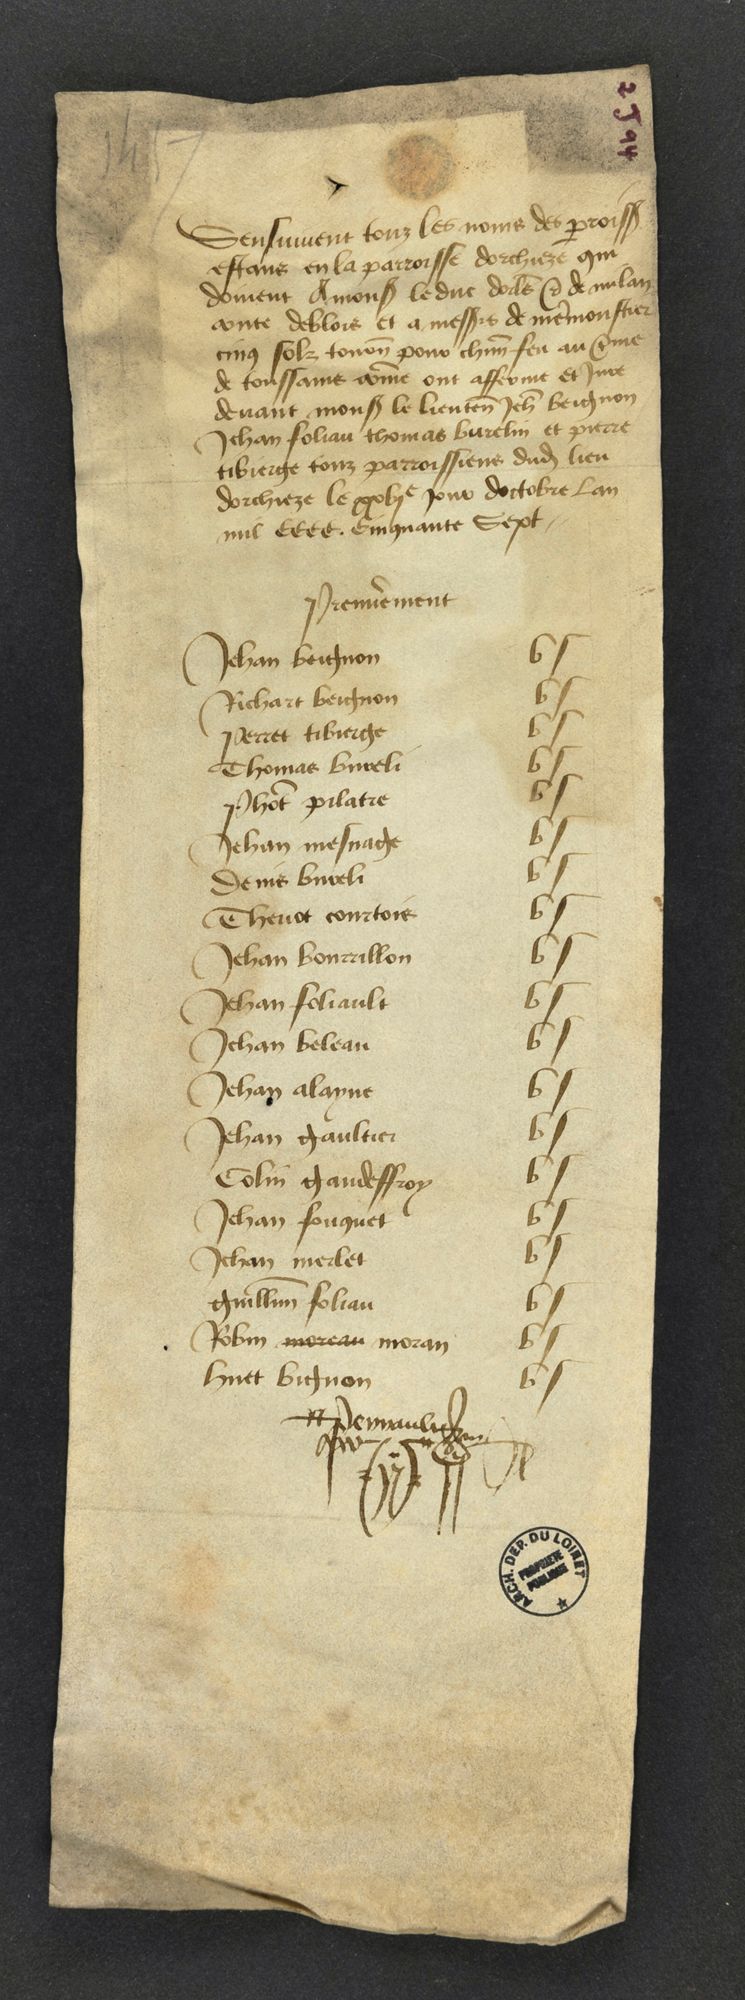 1457
2 J 94
Sensuivent touz les noms des parroiss
estans en la parroisse dorchieze qui
doivent A mons le duc dorls & de milan
conte de blois et a messrs de mermonstier
cinq solz tourn pour chun feu au terme
de toussains come ont afferme et Jure
devant mons le lieuten Jeh beignon
Jehan foliau thomas burelin et pierre
tibierge touz parroissiens dud lieu
dorchieze le xxvie jour doctobre Lan
mil CCCC. Cinquante Sept
Premierement
Jehan beignon vs
Richart beignon vs
Perret tibierge vs
Thomas bureli vs
Phot pilatre vs
Jehan mesnage vs
Denis bureli vs
Thevot courtois vs
Jehan bourrillon vs
Jehan foliault vs
Jehan beleau vs
Jehan alayne vs
Jehan gaultier vs
Colin gaudeffroy vs
Jehan fouquet vs
Jehan merlet vs
guillm foliau vs
Robin moreau moran vs
huet bignon vs
ARCH. DEP. DU LOIRET
PROPRIÉTÉ
PUBLIQUE